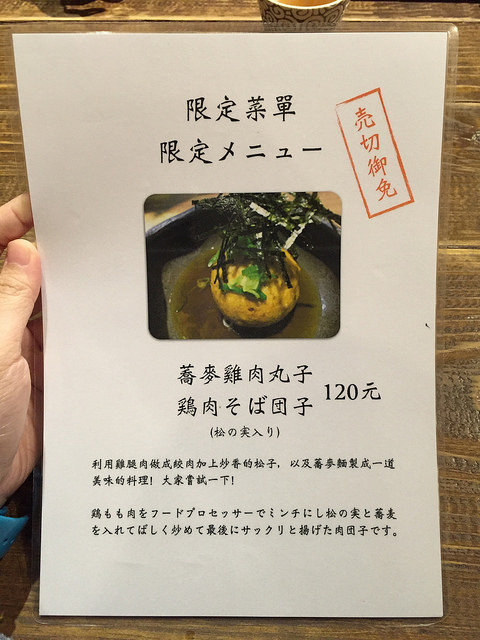 限定菜單
限定メニュー
売切御免
蕎麥雞肉丸子
鶏肉そば団子
120元
(松の実入り)
利用雞腿肉做成絞肉加上炒香的松子，以及蕎麥麵製成一道
美味的料理！大家嘗試一下！
鶏もも肉をフードプロセッサーでミンチにし松の実と蕎麦
を入れてばしく炒めて最後にサックリと揚げた肉団子です。